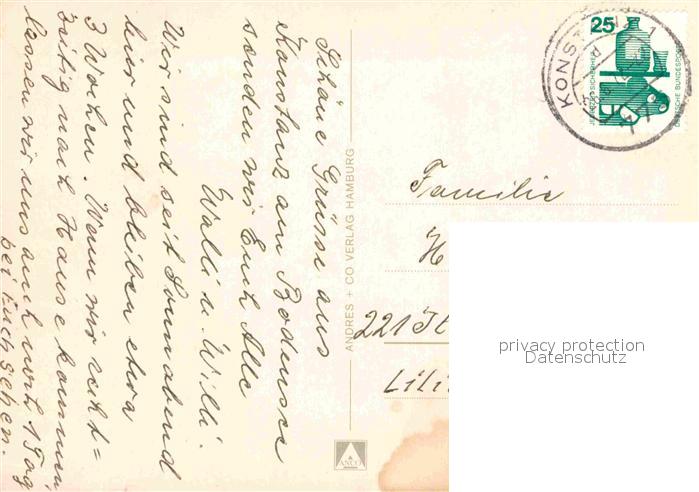 Schöne Grüsse aus
Konstanz am Bodensee
senden wir Euch Alle
Walli u. Willi.
Wir sind seit Sonnabend
hier und bleiben etwa
3 Wochen. Wenn wir recht=
zeitig nach Hause kommen,
lassen wir uns auch noch 1 Tag
bei Euch sehen.
ANDRES + CO VERLAG HAMBURG
ANCO
25
JEDERZEIT SICHERHEIT
DEUTSCHE BUNDESPOST
KONS
Familie
H
221 It
Lili
privacy protection
Datenschutz